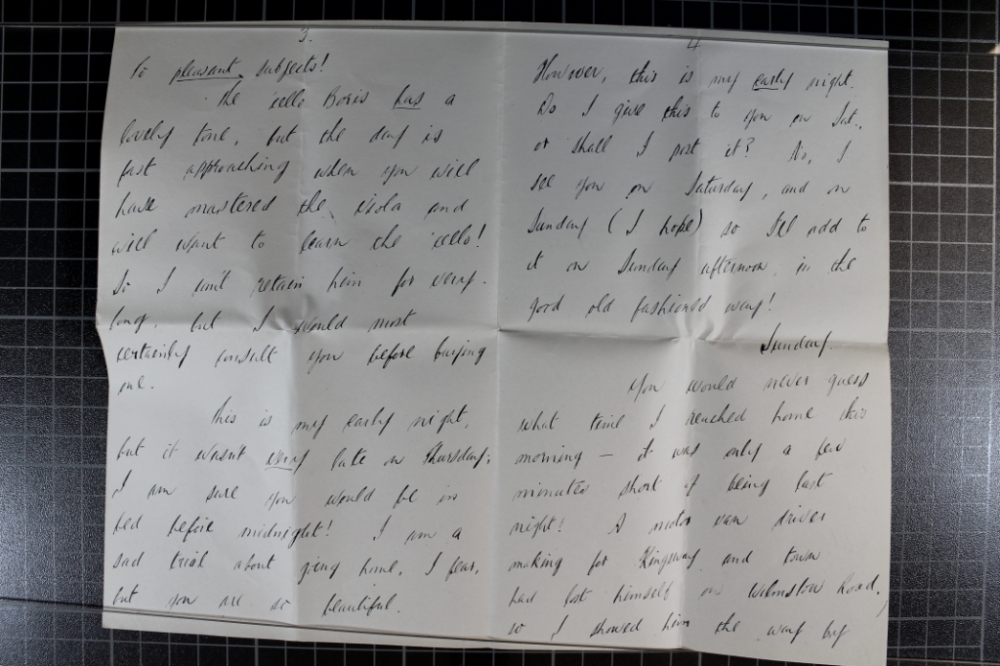 3.
to pleasant subjects!
The 'cello Boris has a
lovely tone, but the day is
fast approaching when you will
have mastered the viola and
will want to learn the 'cello!
So I can't retain him for very
long, but I would most
certainly consult you before buying
one.
This is my early night,
but it wasn't very late on Thursday;
I am sure you would be in
bed before midnight! I am a
sad trial about going home, I fear,
but you are so beautiful.
4
However, this is my early night.
Do I give this to you on Sat.,
or shall I post it? No, I
see you on Saturday, and on
Sunday (I hope) so I'll add to
it on Sunday afternoon, in the
good old fashioned way!
Sunday.
You would never guess
what time I reached home this
morning – it was only a few
minutes short of being last
night! A motor van driver
making for Kingsway and town
had lost himself on Wilmslow Road,
so I showed him the way by